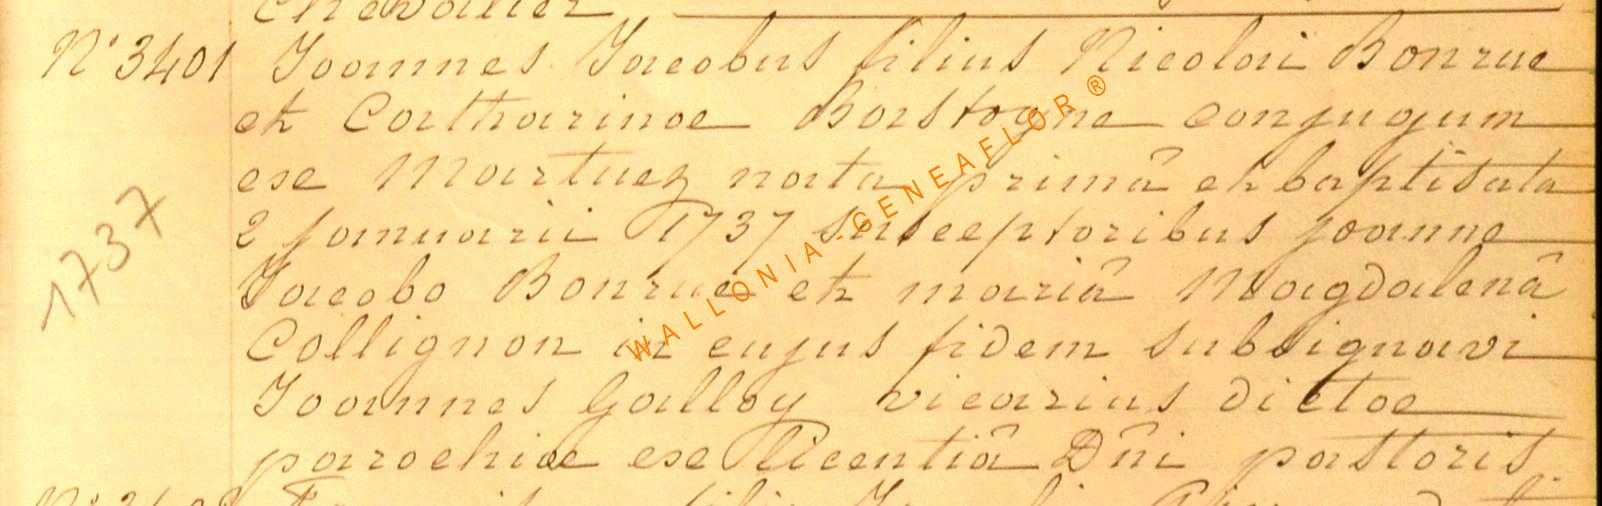 Chevalier
N° 3401 Joannes Jacobus filius Nicolai Bonrue
et Catharinae Bastogne conjugum
ex Martuez nata primâ et baptisata
2 januarii 1737 susceptoribus joanne
Jacobo Bonrue et mariâ Magdalenâ
Collignon in cujus fidem subsignavi
Joannes Galloy vicarius dictae
parochiae ex licentiâ Dni pastoris.
1737
WALLONIA - GENEAFLOR ®